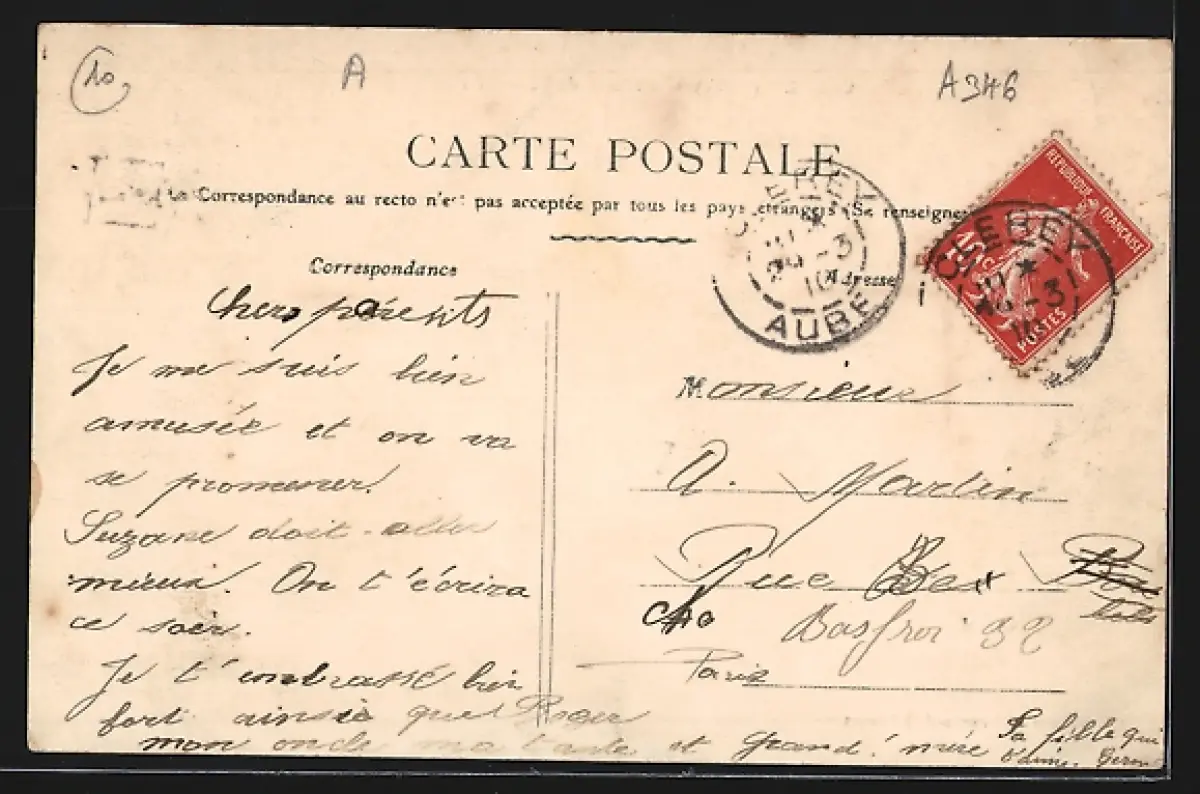 10
A
A346
CARTE POSTALE
La Correspondance au recto n'est pas acceptée par tous les pays étrangers (Se renseigner
Correspondance
Adresse
CLEREY
AUBE
10
REPUBLIQUE FRANÇAISE
10c
POSTES
CLEREY
Chers parents
Je me suis bien
amusée et on va
se promener.
Suzane doit aller
mieux. On t'écrira
ce soir.
Je t'embrasse bien
fort ainsi que Roger
mon oncle ma tante et grand'mère
Ta fille qui
t'aime.
Monsieur
A. Martin
Rue
Basfroi 32
Paris